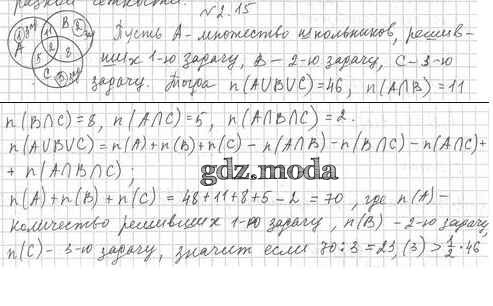 разной
N2.15
Пусть A - множество школьников, решив-
ших 1-ю задачу, B - 2-ю задачу, C - 3-ю
задачу. Тогда n(A∪B∪C)=46, n(A∩B)=11
n(B∩C)=8, n(A∩C)=5, n(A∩B∩C)=2.
n(A∪B∪C)=n(A)+n(B)+n(C)-n(A∩B)-n(B∩C)-n(A∩C)+
+n(A∩B∩C);
gdz.moda
n(A)+n(B)+n(C)=48+11+8+5-2=70, где n(A)-
количество решивших 1-ю задачу, n(B)-2-ю задачу,
n(C)-3-ю задачу, значит если 70:3=23,(3)>1/2·46
A 11 B 5 2 8 C